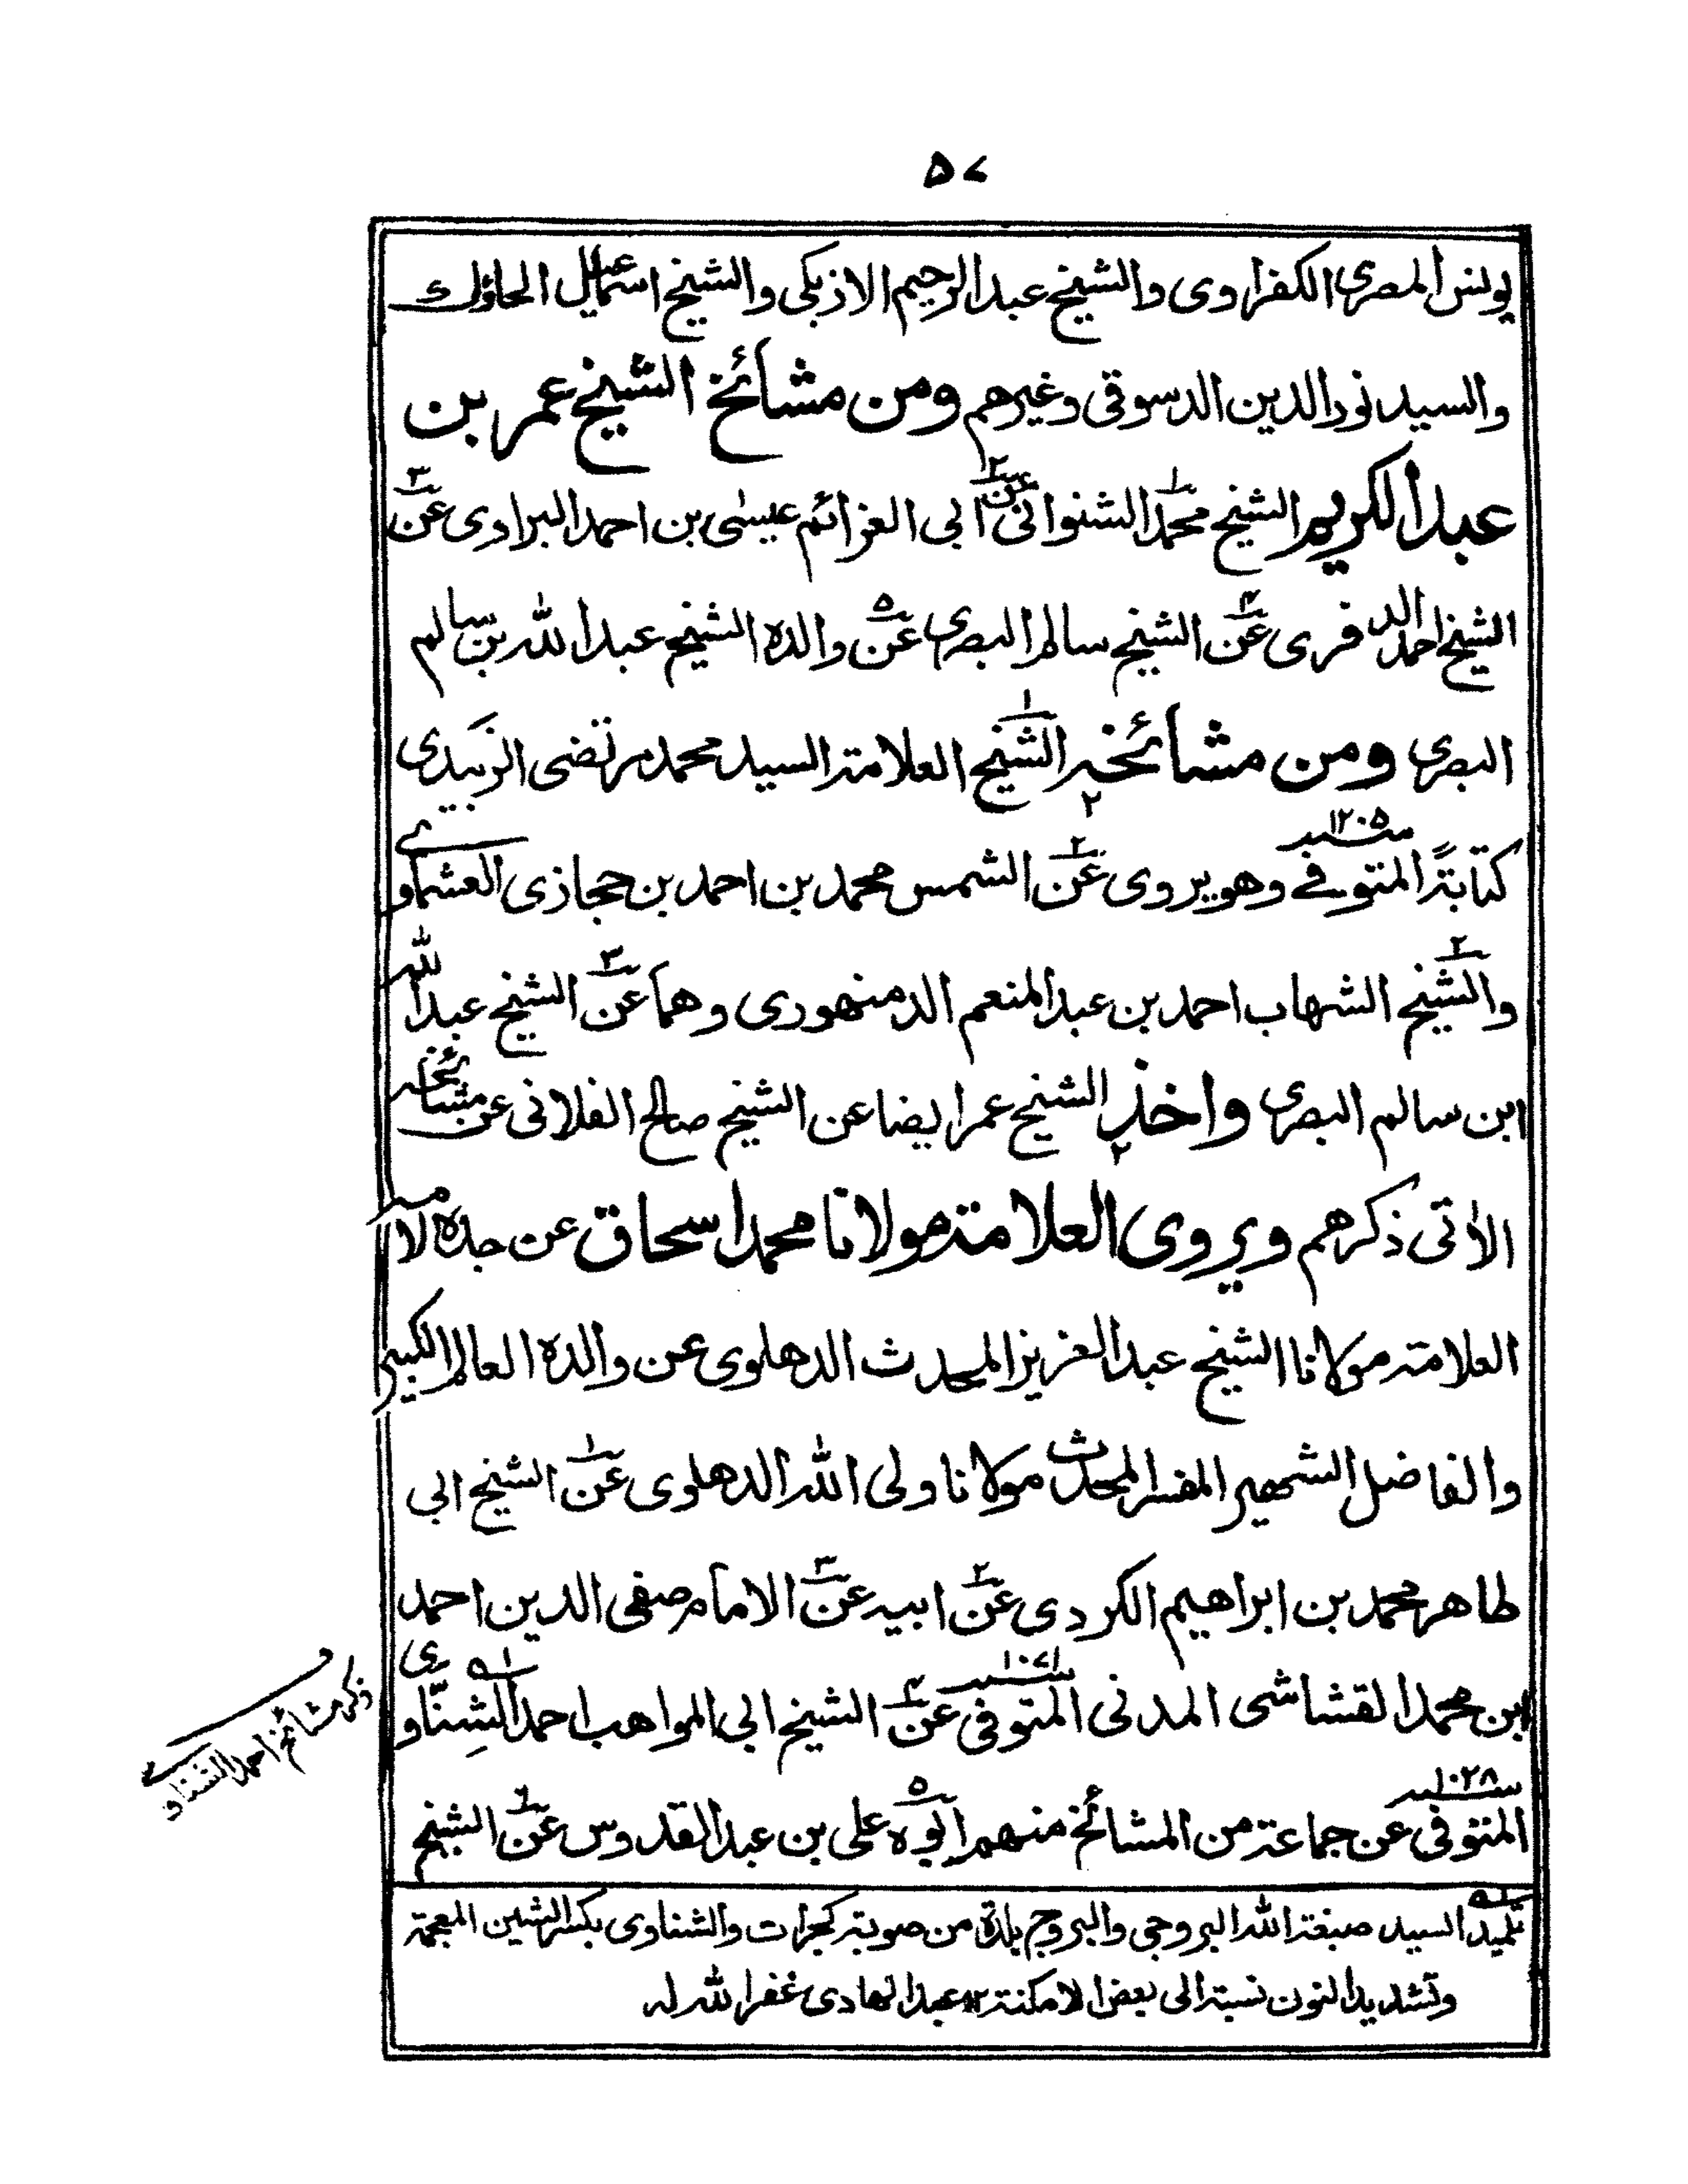 ۵۷
يونس المصرى الكفراوى والشيخ عبدالرحيم الازبكى والشيخ اسمعيل
والسيد نورالدين الدسوقى وغيرهم ومن مشائخ الشيخ عمر بن
عبدالكريم الشيخ محمد الشنوانى عن ابى العزائم عيسٰى بن احمد البراوى عن
الشيخ احمد الدفرى عن الشيخ سالم البصرى عن والده الشيخ عبد الله بن سالم
البصرى ومن مشائخہ الشيخ العلامة السيد محمد مرتضى الزبيدى
كتابةً المتوفے سنہ ۱۲۰۵ وهو يروى عن الشمس محمد بن احمد بن حجازى العشماوے
والشيخ الشهاب احمد بن عبدالمنعم الدمنهورى وهما عن الشيخ عبدالله
ابن سالم البصرى واخذ الشيخ عمر ايضا عن الشيخ صالح الفلانى عن مشائخہ
الاٰتى ذكرهم ويروى العلامة مولانا محمد اسحاق عن جده لامہ
العلامة مولانا الشيخ عبدالعزيز المحدث الدهلوى عن والده العالم الكبير
والفاضل الشهير المفسر المحدث مولانا ولى الله الدهلوى عن الشيخ ابى
طاهر محمد بن ابراهيم الكردى عن ابيه عن الامام صفى الدين احمد
ابن محمد القشاشى المدنى المتوفى سنہ ۱۰۷۱ عن الشيخ ابى المواهب احمد الشِنّاوى
المتوفى سنہ ۱۰۲۸ عن جماعة من المشائخ منهم ابوه على بن عبدالقدوس عن الشيخ
ذكر مشائخ احمد الشناوے
تلميذ السيد صبغة الله البروجى والبروج بلدة من صوبة كجرات والشناوى بكسر الشين المعجمة
وتشديد النون نسبة الى بعض الامكنة ۱۲ عبدالهادى غفرالله له